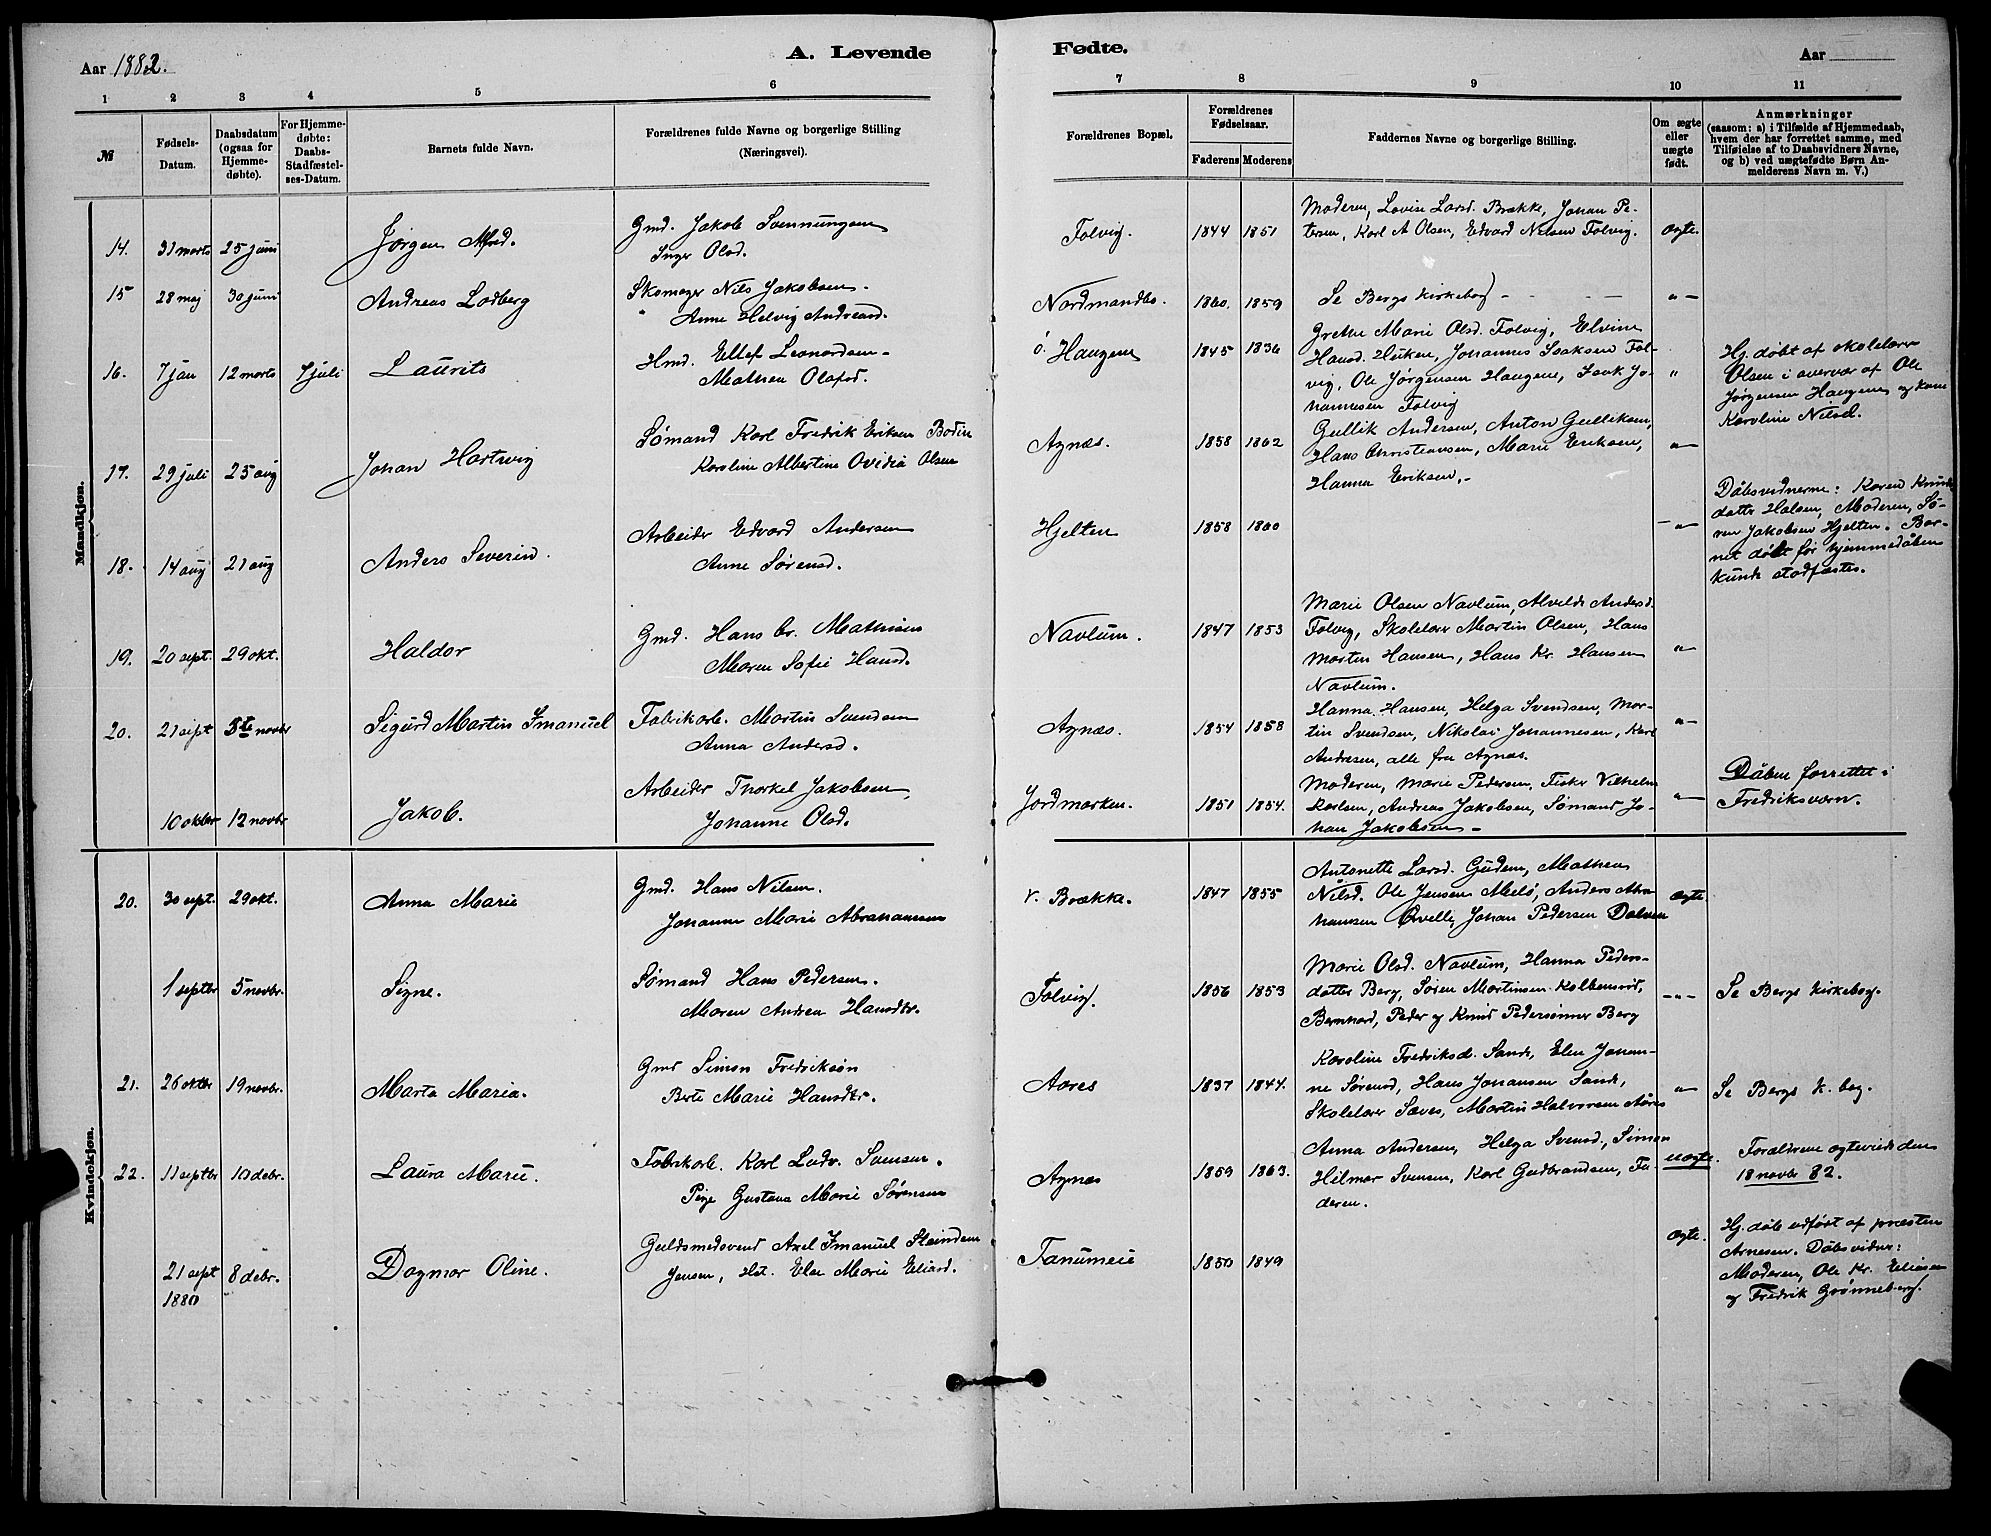 Aar 1882.
A. Levende
Fødte.
Aar
1 2 3 4 5 6 7 8 9 10 11
№
Fødsels-
Datum.
Daabsdatum
(ogsaa for
Hjemme-
døbte).
For Hjemme-
døbte:
Daabs-
Stadfæstel-
ses-Datum.
Barnets fulde Navn.
Forældrenes fulde Navne og borgerlige Stilling
(Næringsvei).
Forældrenes Bopæl.
Forældrenes
Fødselsaar.
Faderens Moderens
Faddernes Navne og borgerlige Stilling.
Om ægte
eller
uægte
født.
Anmærkninger
(saasom: a) i Tilfælde af Hjemmedaab,
hvem der har forrettet samme, med
Tilføielse af to Daabsvidners Navne,
og b) ved uægtefødte Børn An-
melderens Navn m. V.)
Mandkjøn.
14. 31 marts 25 juni
Jørgen Alfred.
Gmd. Jakob Svennungsen
Inger Olsd.
Folvig.
1844 1851
Moderen, Lovise Larsd. Brække, Johan Pe-
tersen, Karl A Olsen, Edvard Nilsen Folvig.
ægte.
15 28 maj 30 juni
Andreas Lodberg
Skomager Nils Jakobsen.
" Anne Helvig Andreasd.
Nordmandbo.
1860. 1859
Se Bergs Kirkebog - - -
"
16. 7 jan 12 marts 9 juli
Laurits
Hmd. Ellef Leonardsen
Mathea Olafsd.
ö. Haugene
1845 1836
Grethe Marie Olsd. Folvig, Elvine
Hansd. Huken, Johannes Isaksen Fol-
vig, Ole Jørgensen Haugene, Isak Jo-
hannesen Folvig
"
Hj. døbt af skolelærer
Olsen i overvær af Ole
Jørgensen Haugene og kone
Karoline Nilsd.
17. 29 juli 25 aug
Johan Hartvig
Sømand Karl Fredrik Eriksen Bodin
Karoline Albertine Ovidia Olsen
Agnæs.
1858 1862
Gullik Andersen, Anton Gulliksen,
Hans Christiansen, Marie Eriksen,
Hanna Eriksen.-
"
18. 14 aug 21 aug
Anders Severin.
Arbeider Edvard Andersen
Anne Sørensd.
Hjelten
1858 1860
"
Dåbsvidnerne: Karen Knuds
datter Halsen, Moderen, Sø-
ren Jakobsen Hjelten. Bar-
net dødt før hjemmedåben
kunde stadfæstes.
19. 20 sept. 29 okt.
Haldor
Gmd. Hans Chr. Mathisen
Maren Sofie Hansd.
Navlum.
1847 1853
Marie Olsen Navlum, Alvilde Andersd.
Folvig, Skolelær Martin Olsen, Hans
Morten Hansen, Hans Kr. Hansen
Navlum.
"
20. 21 sept 5te novbr
Sigurd Martin Imanuel
Fabrikarb. Martin Svendsen
Anna Andersd.
Agnæs.
1854 1858
Hanna Hansen, Helga Svendsen, Mar-
tin Svendsen, Nikolai Johannesen, Karl
Andresen, alle fra Agnæs.
"
10 oktbr 12 novbr
Jakob.
Arbeider Thorkel Jakobsen,
Johanne Olsd.
Jordmarken.
1851 1854.
Moderen, Marie Pedersen, Fisker Vilhelm
Karlsen, Andreas Jakobsen, Sømand Jo-
han Jakobsen -
"
Dåben forrettet i
Fredriksværn.
Kvindekjøn.
20. 30 sept. 29 okt.
Anna Marie
Gmd. Hans Nilsen.
Johanne Marie Abrahamsen
v. Brække.
1847 1855
Antonette Larsd. Guden, Mathea
Nilsd. Ole Jensen Melø, Anders Abra
hamsen Ørvelle, Johan Pedersen Dalven
ægte.
1 septbr 5 novbr.
Signe.
Sømand Hans Pedersen.
Maren Andrea Hansdtr.
Folvig.
1856 1853
Marie Olsd. Navlum, Hanna Peders-
datter Berg, Søren Martinsen Kolbensrød,
Bernhard, Peder og Knud Pedersønner Berg
"
Se Bergs Kirkebog.
21. 26 oktbr 19 novbr.
Marta Maria.
Gmd Simon Fredriksøn
Berte Marie Hansdtr.
Aares
1837 1844.
Karoline Fredriksd. Sande, Elen Johan-
ne Sørensd, Hans Johansen Sande,
Skolelær Sæves, Martin Halvorsen Aares
"
Se Bergs K. bog.
22. 11 septbr 10 debr.
Laura Marie.
Fabrikarb. Karl Ludv. Svensen.
Pige Gustava Marie Sørensen
Agnæs
1859 1863.
Anna Andersen, Helga Svensd., Simon
Hilmar Svensen, Karl Gudbrandsen, Fa-
deren.
uægte.
Forældrene ægteviede den
18 novbr 82.
21 sept 8 debr.
1880
Dagmar Oline.
Guldsmedsvend Axel Imanuel Steindem
Jensen, Hst. Else Marie Eliasd.
Tanumeie
1850 1849
ægte.
Hj. døbt udført af præsten
Arnesen. Dåbsvidner:
Moderen, Ole Kr. Eliasen
og Fredrik Grønneberg.